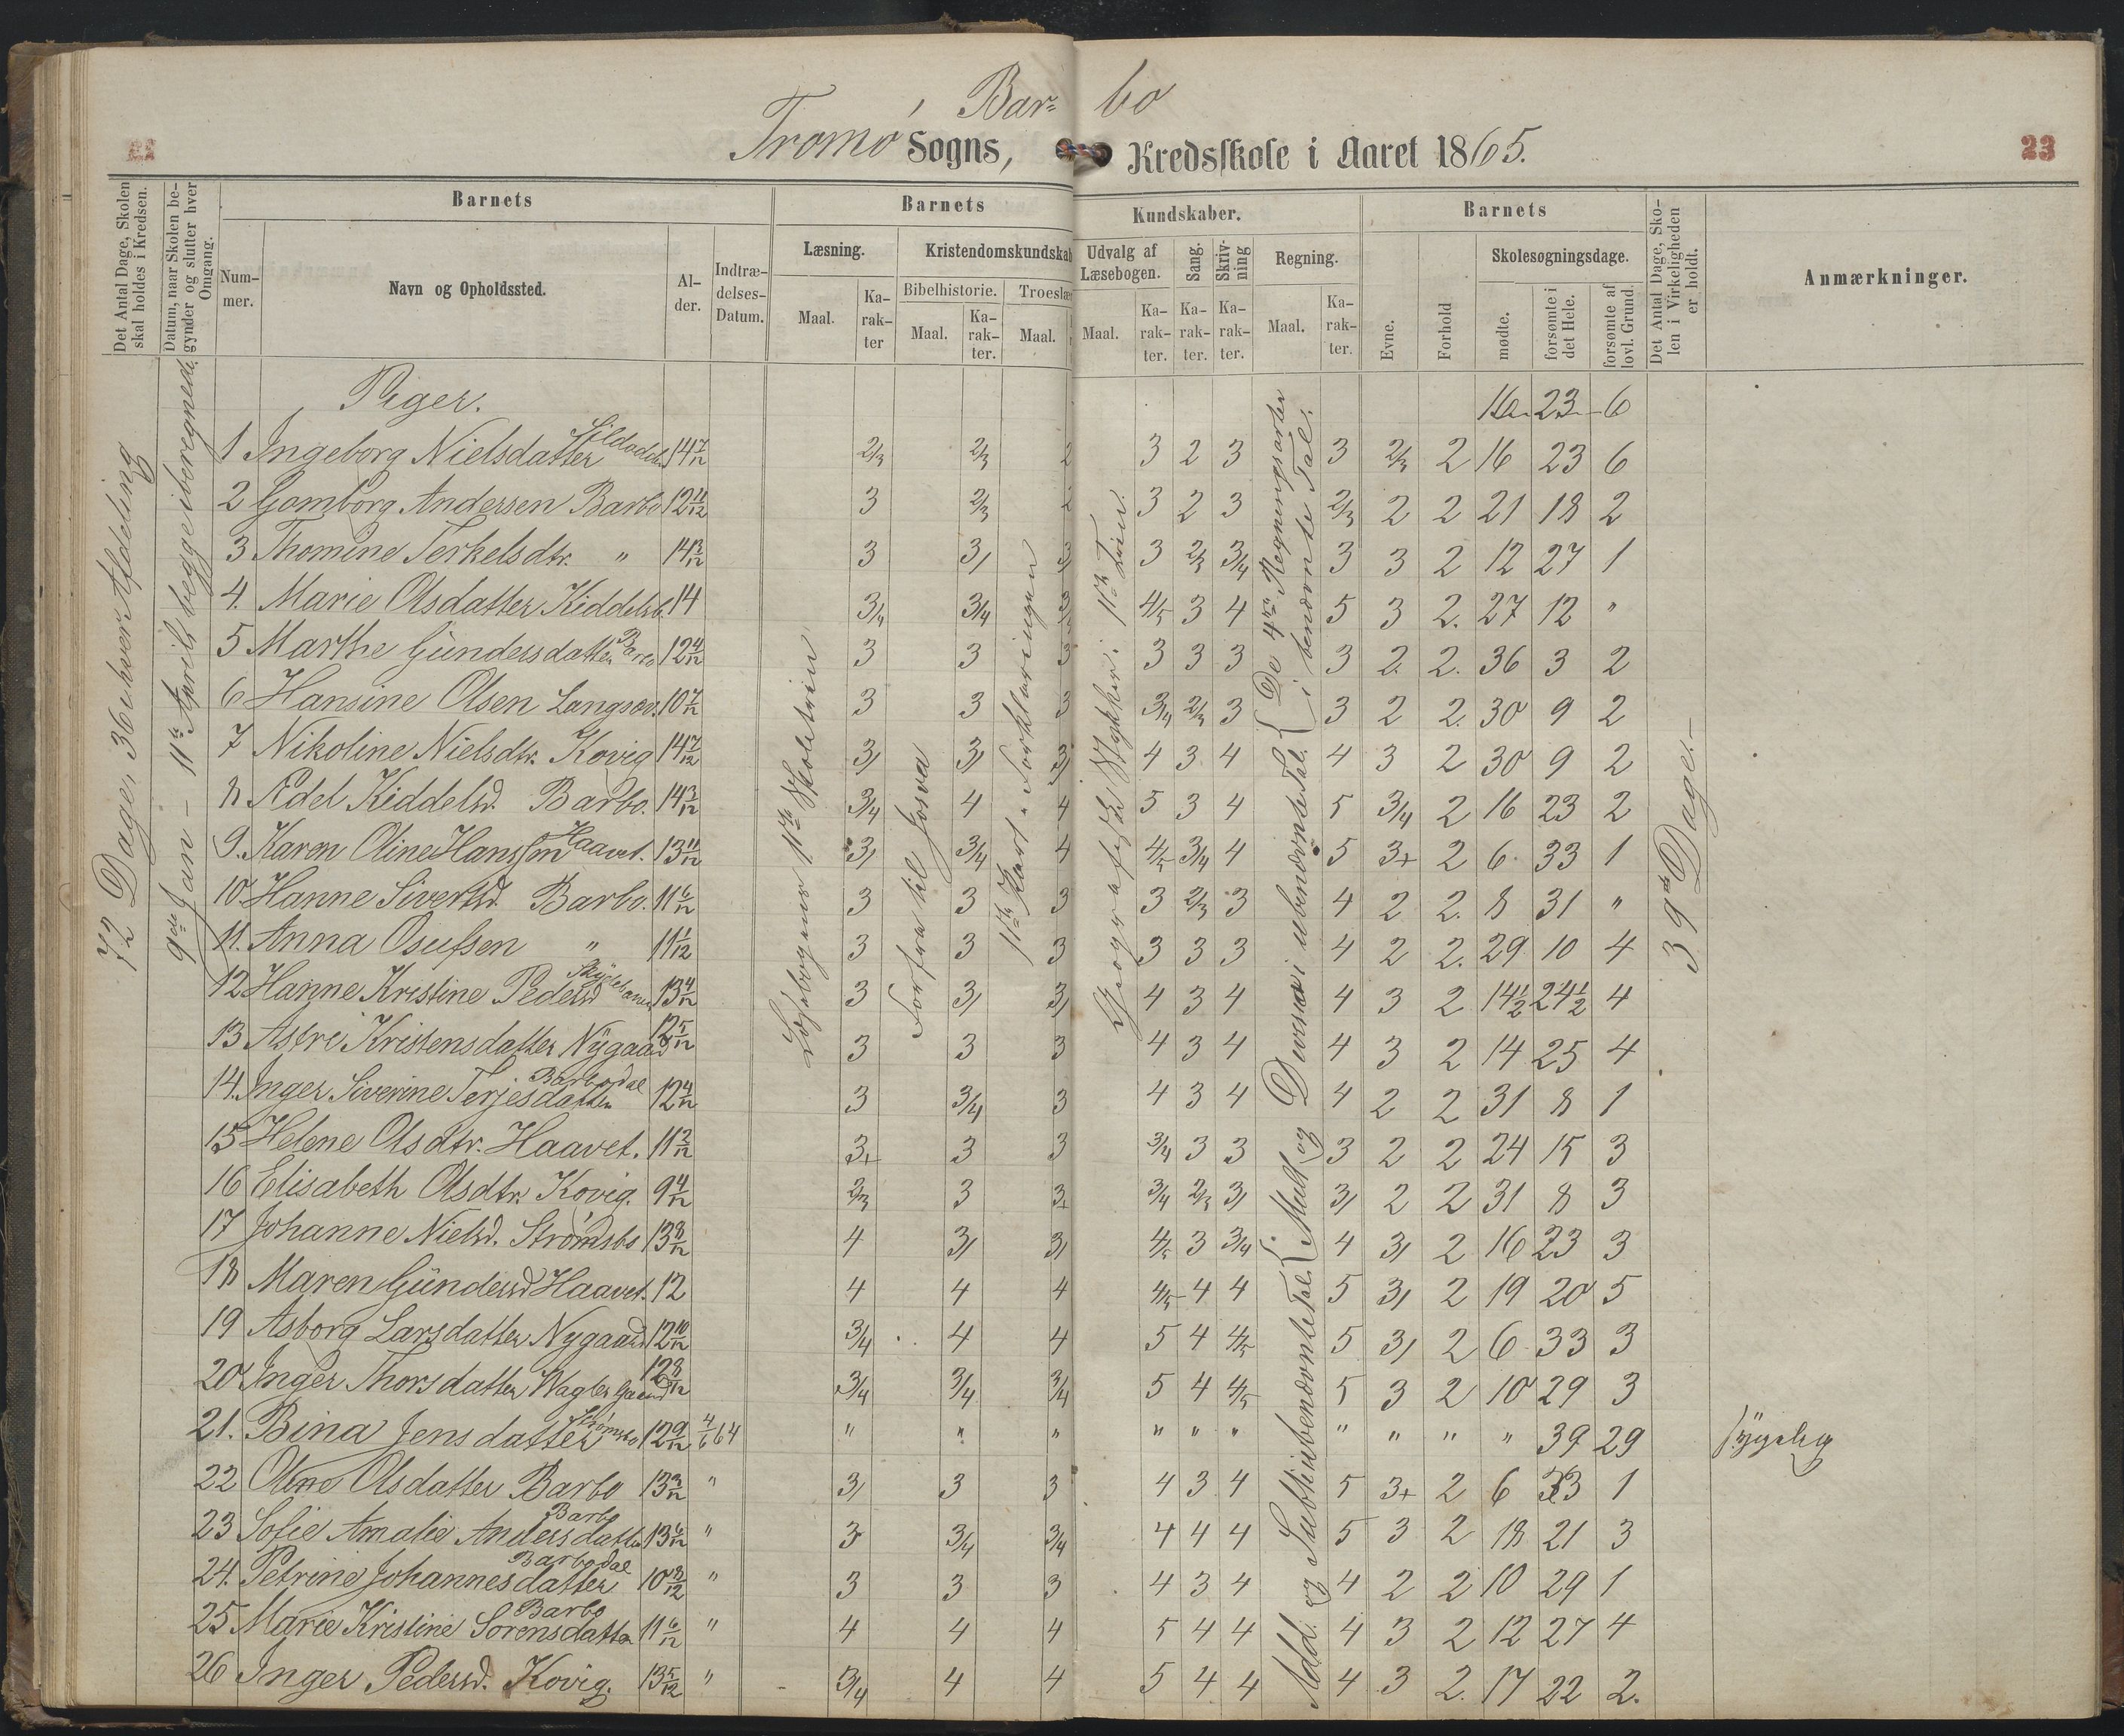 Bar= bo
Tromø Sogns, Kredsskole i Aaret 1865.
23
Det Antal Dage, Skolen skal holdes i Kredsen.
Datum, naar Skolen begynder og slutter hver Omgang.
Barnets
Num-mer.
Navn og Opholdssted.
Al-der.
Indtræ-delses-Datum.
Barnets Kundskaber.
Læsning.
Maal. Ka-rak-ter
Kristendomskundskab
Bibelhistorie. Troeslær
Maal. Ka-rak-ter. Maal.
Udvalg af Læsebogen.
Maal. Ka-rak-ter.
Sang. Ka-rak-ter.
Skriv-ning Ka-rak-ter.
Regning.
Maal. Ka-rak-ter.
Barnets
Evne. Forhold
Skolesøgningsdage.
mødte. forsømte i det Hele. forsømte af lovl. Grund.
Det Antal Dage, Sko-len i Virkeligheden er holdt.
Anmærkninger.
72 Dage, 36 i hver Afdeling
9de Jan – 11te April begge iberegnede
Læsebogens 1ste Skoletrin
Forfra til Josva
1ste Part
Forklaringen
1ste Trin
De 4re Regningsarter i benævnte Tal.
Mult. og Divis. i ubenævnte Tal.
Add. og Subt. i ubenævnte Tal.
39 Dage.–
Piger. 16 23 6
1 Ingeborg Nielsdatter 14 7/12 2/3 2/3 2 3 2 3 3 2/3 2 16 23 6
2 Gomborg Andersen Barbo 12 11/12 3 2/3 3 2 3 2/3 2 2 21 18 2
3 Thomine Terkelsdtr. " 14 3/12 3 3/ 3/ 3 2/3 3/4 3 3 2 12 27 1
4. Marie Olsdatter 14 3/4 3/4 4/5 3 4 5 3 2. 27 12 "
5 Marthe Gündersdatter Barbo 12 4/12 3 3 3 3 3 3 3 2. 2. 36 3 2
6 Hansine Olsen Langsæv. 10 7/12 3 3 3 3/4 2/3 3 3 2 2. 30 9 2
7 Nikoline Nielsdtr. Kovig 14 7/12 3/ 3/ 3/ 4 3 4 4 3 2 30 9 2
8 Ædel Kiddelsd. Barbo. 14 3/12 3/4 4 4 5 3 4 5 3/4 2 16 23 2
9. Karen Oline Hanssen Haavet. 13 11/12 3/ 3/4 4 4/5 3/4 4 5 3+ 2 6 33 1
10 Hanne Sivertsd. Barbo. 11 6/12 3 3 3 3 2/3 3 4 2 2. 8 31 "
11. Anna Osufsen " 11 1/12 3 3 3 3 3 3 4 2 2. 29 10 4
12 Hanne Kristine Pedersd 13 4/12 3 3/ 3/ 4 3 4 4 3 2 14½ 24½ 4
13 Astri Kristensdatter Nÿgaard 12 5/12 3 3 3 4 3 4 4 3 2 14 25 4
14. Inger Siverine Terjesdatter Barbodal 12 4/12 3 3/4 3 4 3 4 4 2 2 31 8 1
15 Helene Olsdtr. Haavet. 11 2/12 3+ 3 3 3/4 3 3 3 2 2 24 15 3
16 Elisabeth Olsdtr. Kovig. 9 4/12 2/3 3 3+ 3/4 2/3 3/ 3/ 2 2 31 8 3
17 Johanne Nielsd. Strömsbo 13 8/12 4 3/ 3/ 4/5 3 3/4 4 3/ 2 16 23 3
18 Maren Gündersd Haavet. 12 4 4 4 4/5 4 4 5 3/ 2 19 20 5
19 Asborg Larsdatter Nygaard 12 10/12 3/4 4 4 5 4 4/5 5 3/ 2 6 33 3
20 Inger Thorsdatter 12 8/12 3/4 3/4 3/4 5 4 4/5 5 3 2 10 29 3
21. Bina Jensdatter Strömsbo 12 9/12 4/6 64 " " " " " " " " " " 39 29 sÿgelig
22 Oline Olsdatter Barbo 13 3/12 " 3/ 3 3 4 3 4 5 3+ 2 6 33 1
23 Sofie Amalie Andersdatter Barbo 13 6/12 " 3 3/4 3/4 4 4 4 5 3 2 18 21 3
24. Petrine Johannesdatter Barbodal 10 8/12 " 3 3 3 4 3 4 4 2 2 10 29 1
25 Marie Kristine Sorensdatter Barbo 11 6/12 " 4 4 4 5 4 4 4 3 2 12 27 4
26 Inger Pedersd. Kovig. 13 5/12 " 3/4 4 4 5 4 4 4 3 2. 17 22 2.